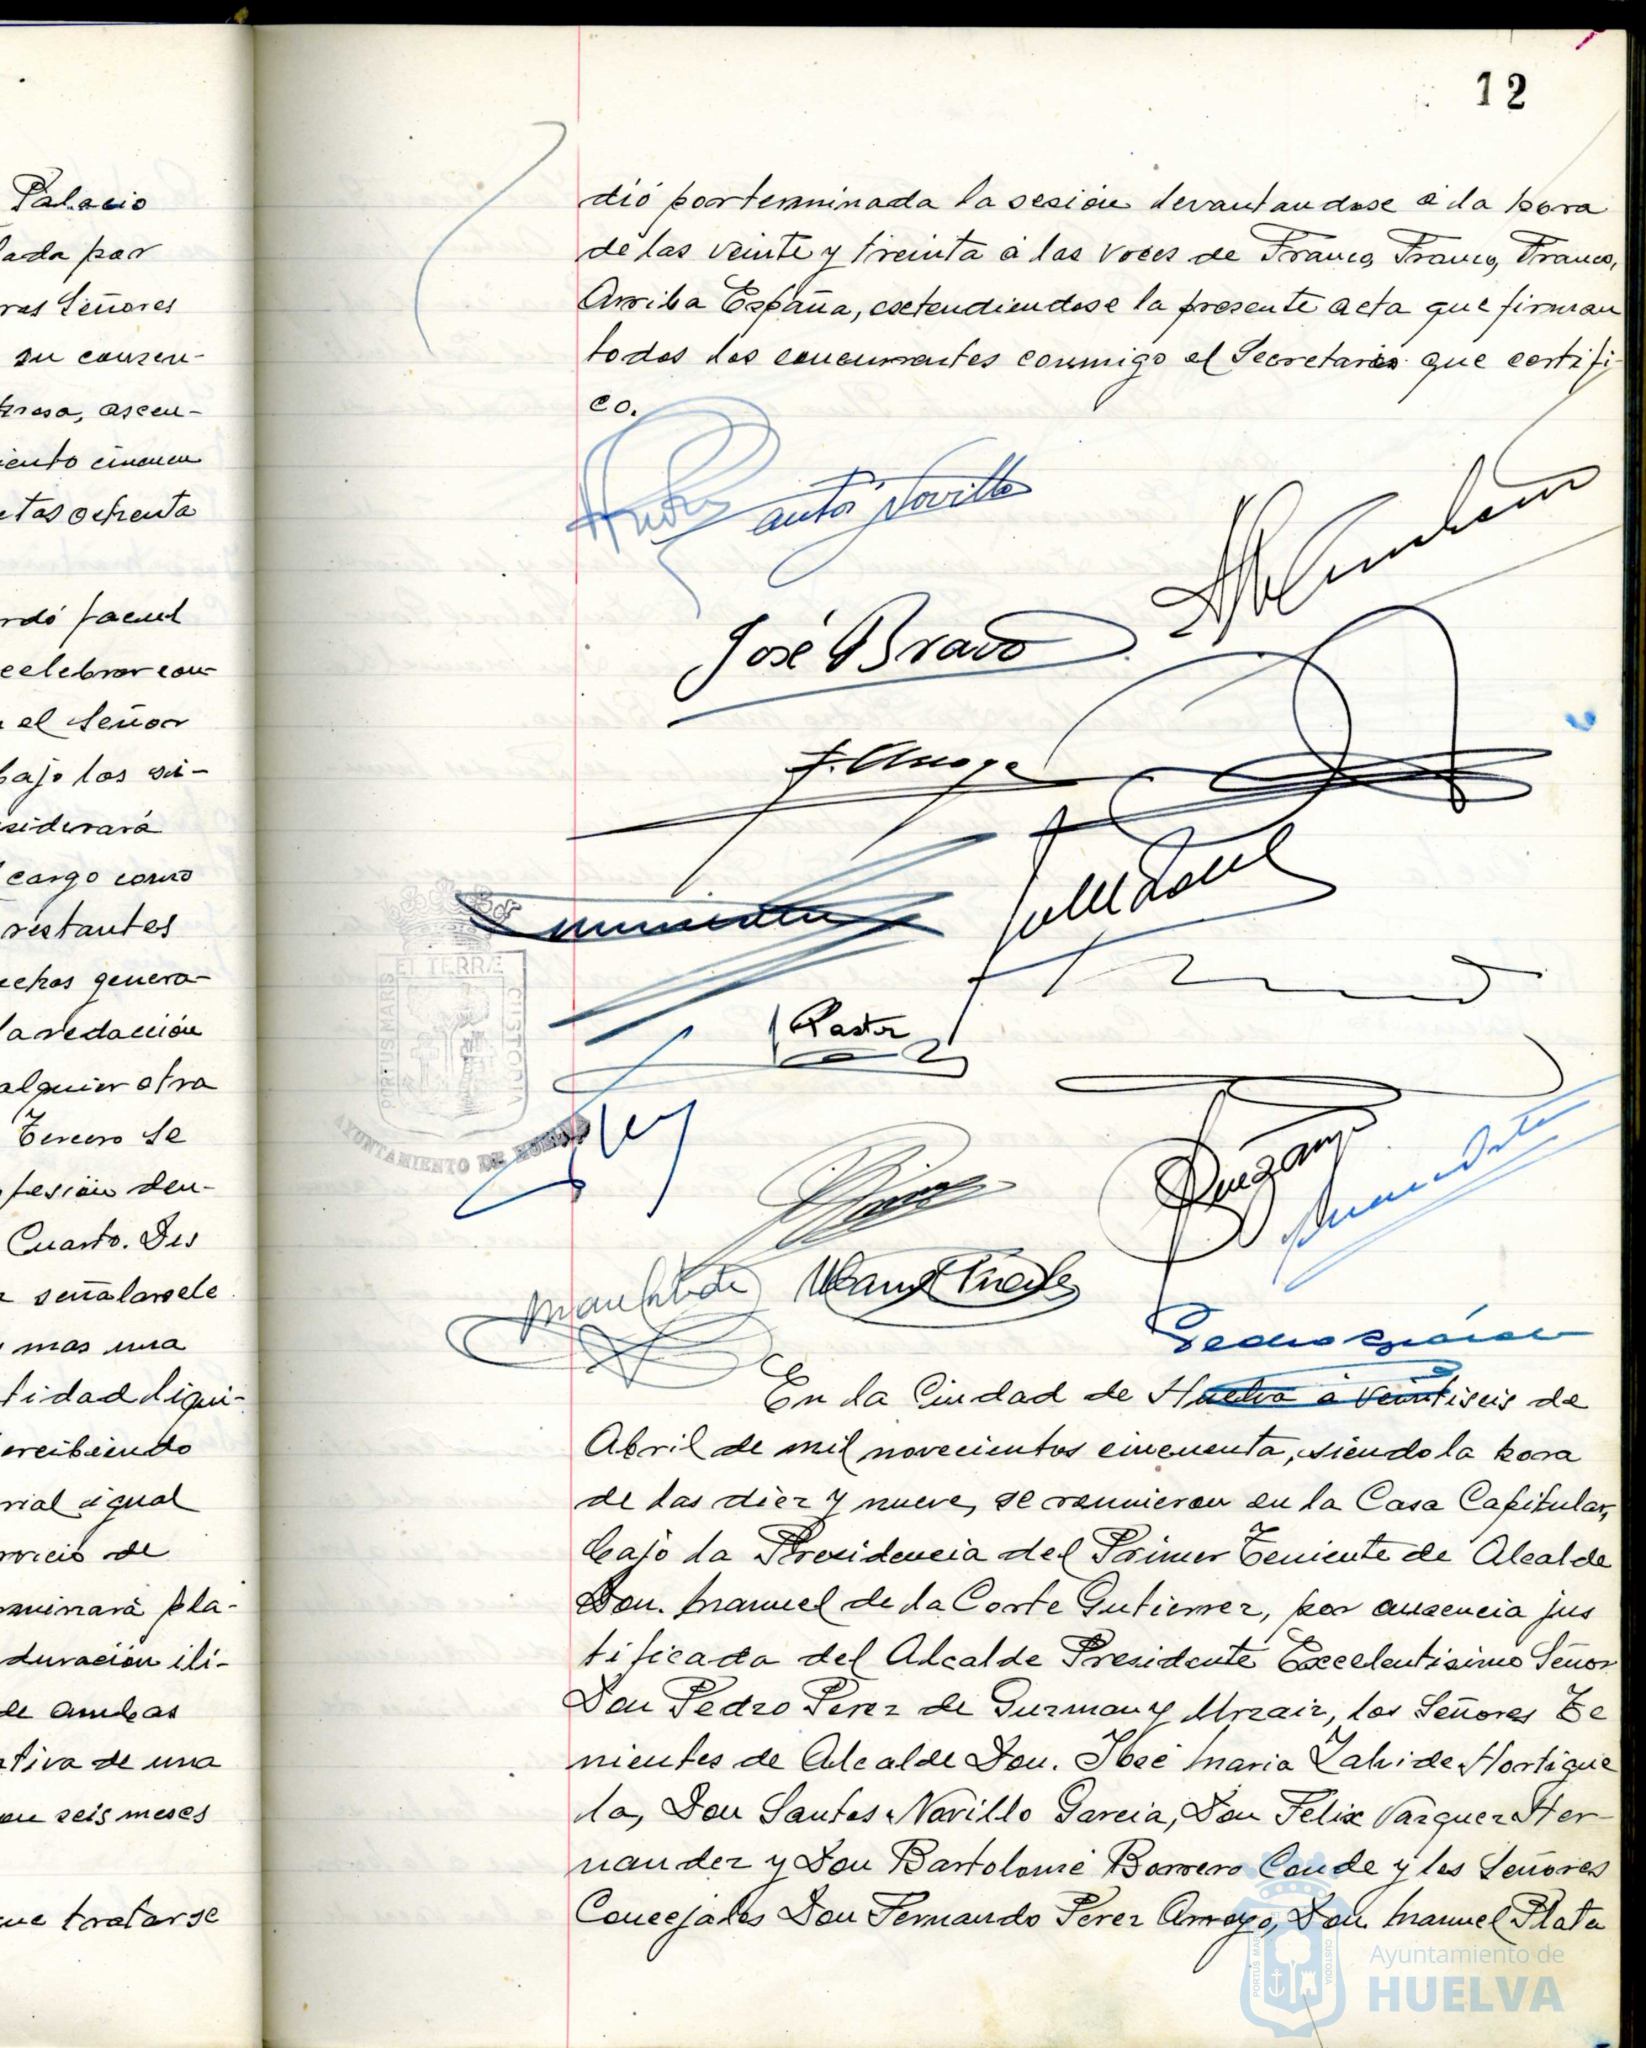 Palacio
lada por
ras Señores
su consen-
teresa, ascen-
iento cincuen
etas ochenta
rdó facul
celebrar con-
el Señor
bajo los si-
siderará
cargo como
restantes
echos genera-
la redacción
alquier otra
Tercero Se
fesión den-
Cuarto. Des
señalarsele
mas una
tidad liqui-
ercibiendo
rial igual
rvicio de
minará pla-
duración ili-
de ambas
tiva de una
seis meses
que tratarse
12
dió por terminada la sesión levantandose á la hora
de las veinte y treinta á las voces de Franco, Franco, Franco,
Arriba España, extendiendose la presente acta que firman
todos los concurrentes conmigo el Secretario que certifi-
co.
Santos Novillo
José Bravo
F. Arroyo
Pastor
ET TERRÆ
PORTUS MARIS
CUSTODIA
AYUNTAMIENTO DE HUELVA
En la Ciudad de Huelva á veintiseis de
Abril de mil novecientos cincuenta, siendo la hora
de las diez y nueve, se reunieron en la Casa Capitular,
bajo la Presidencia del Primer Teniente de Alcalde
Don. Manuel de la Corte Gutierrez, por ausencia jus
tificada del Alcalde Presidente Excelentisimo Señor
Don Pedro Perez de Guzman y Urzaiz, los Señores Te
nientes de Alcalde Don. José Maria Zalvide Hortigue
la, Don Santos Novillo Garcia, Don Felix Vazquez Her-
nandez y Don Bartolomé Borrero Conde y los Señores
Concejales Don Fernando Perez Arroyo, Don Manuel Plata
Ayuntamiento de
HUELVA